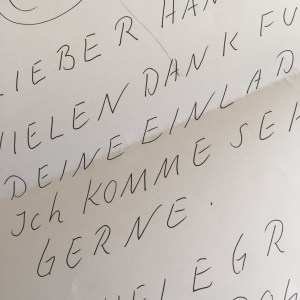 LIEBER HAN
VIELEN DANK FU
DEINE EINLAD
Ich KOMME SEH
GERNE.
VIELE GR